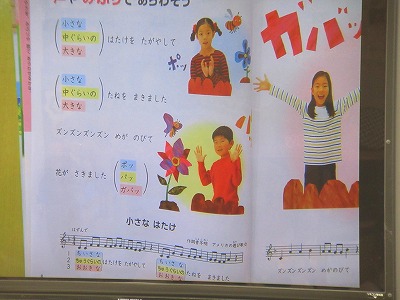 みぶりで あらわそう
小さな
中ぐらいの
大きな
はたけを たがやして
ポッ
ガバッ
小さな
中ぐらいの
大きな
たねを まきました
ズンズンズンズン めが のびて
花が さきました
ポッ
パッ
ガバッ
小さな はたけ
はずんで
作詞者不明 アメリカの遊び歌
1 ちいさな
2 ちゅうぐらいの はたけをたがやして
3 おおきな
ちいさな
ちゅうぐらいの たねを まきました
おおきな
ズンズンズンズン めがのびて